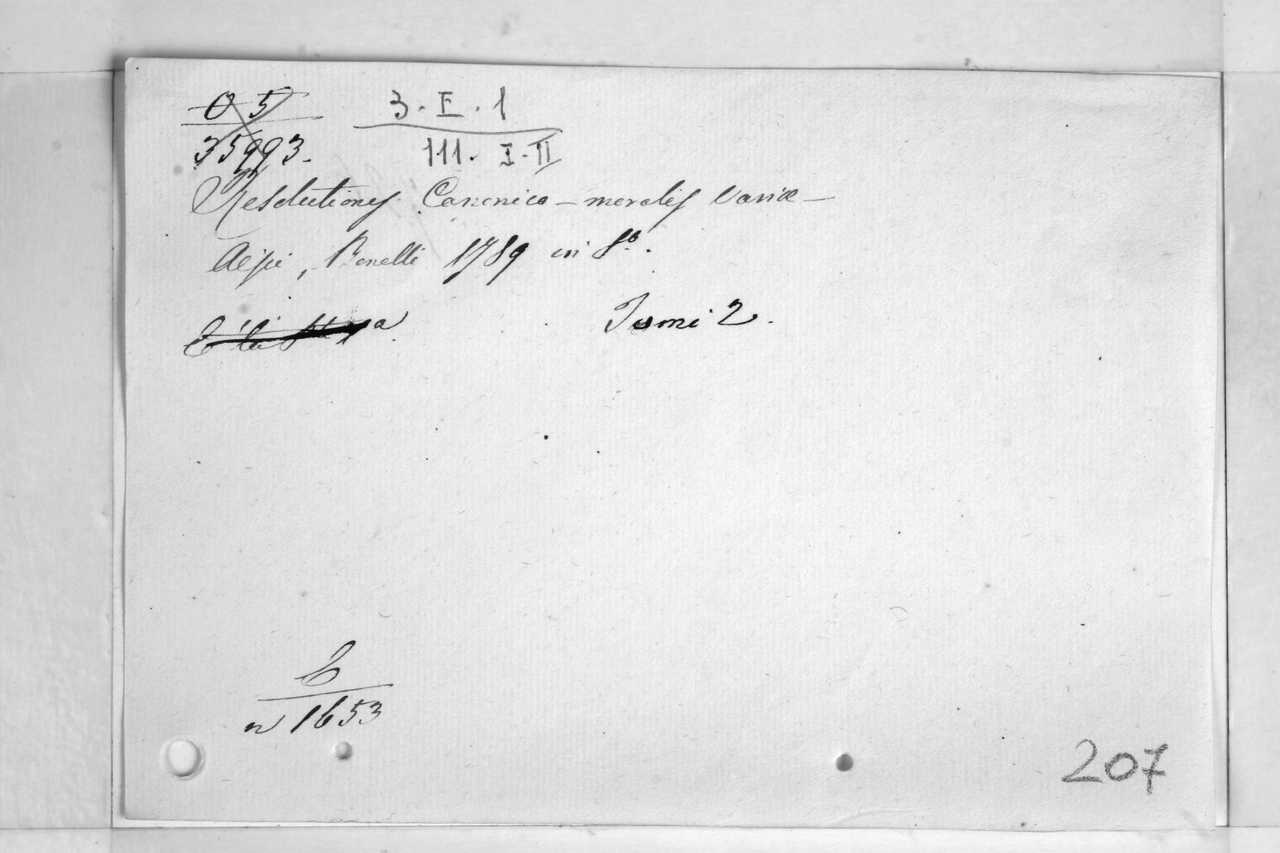 O 5
35993.
3. E. 1
111. I-II
Resolutiones Canonico-morales variæ
, Bonelli 1789 in 8º.
Tomi 2.
b
n 1653
207